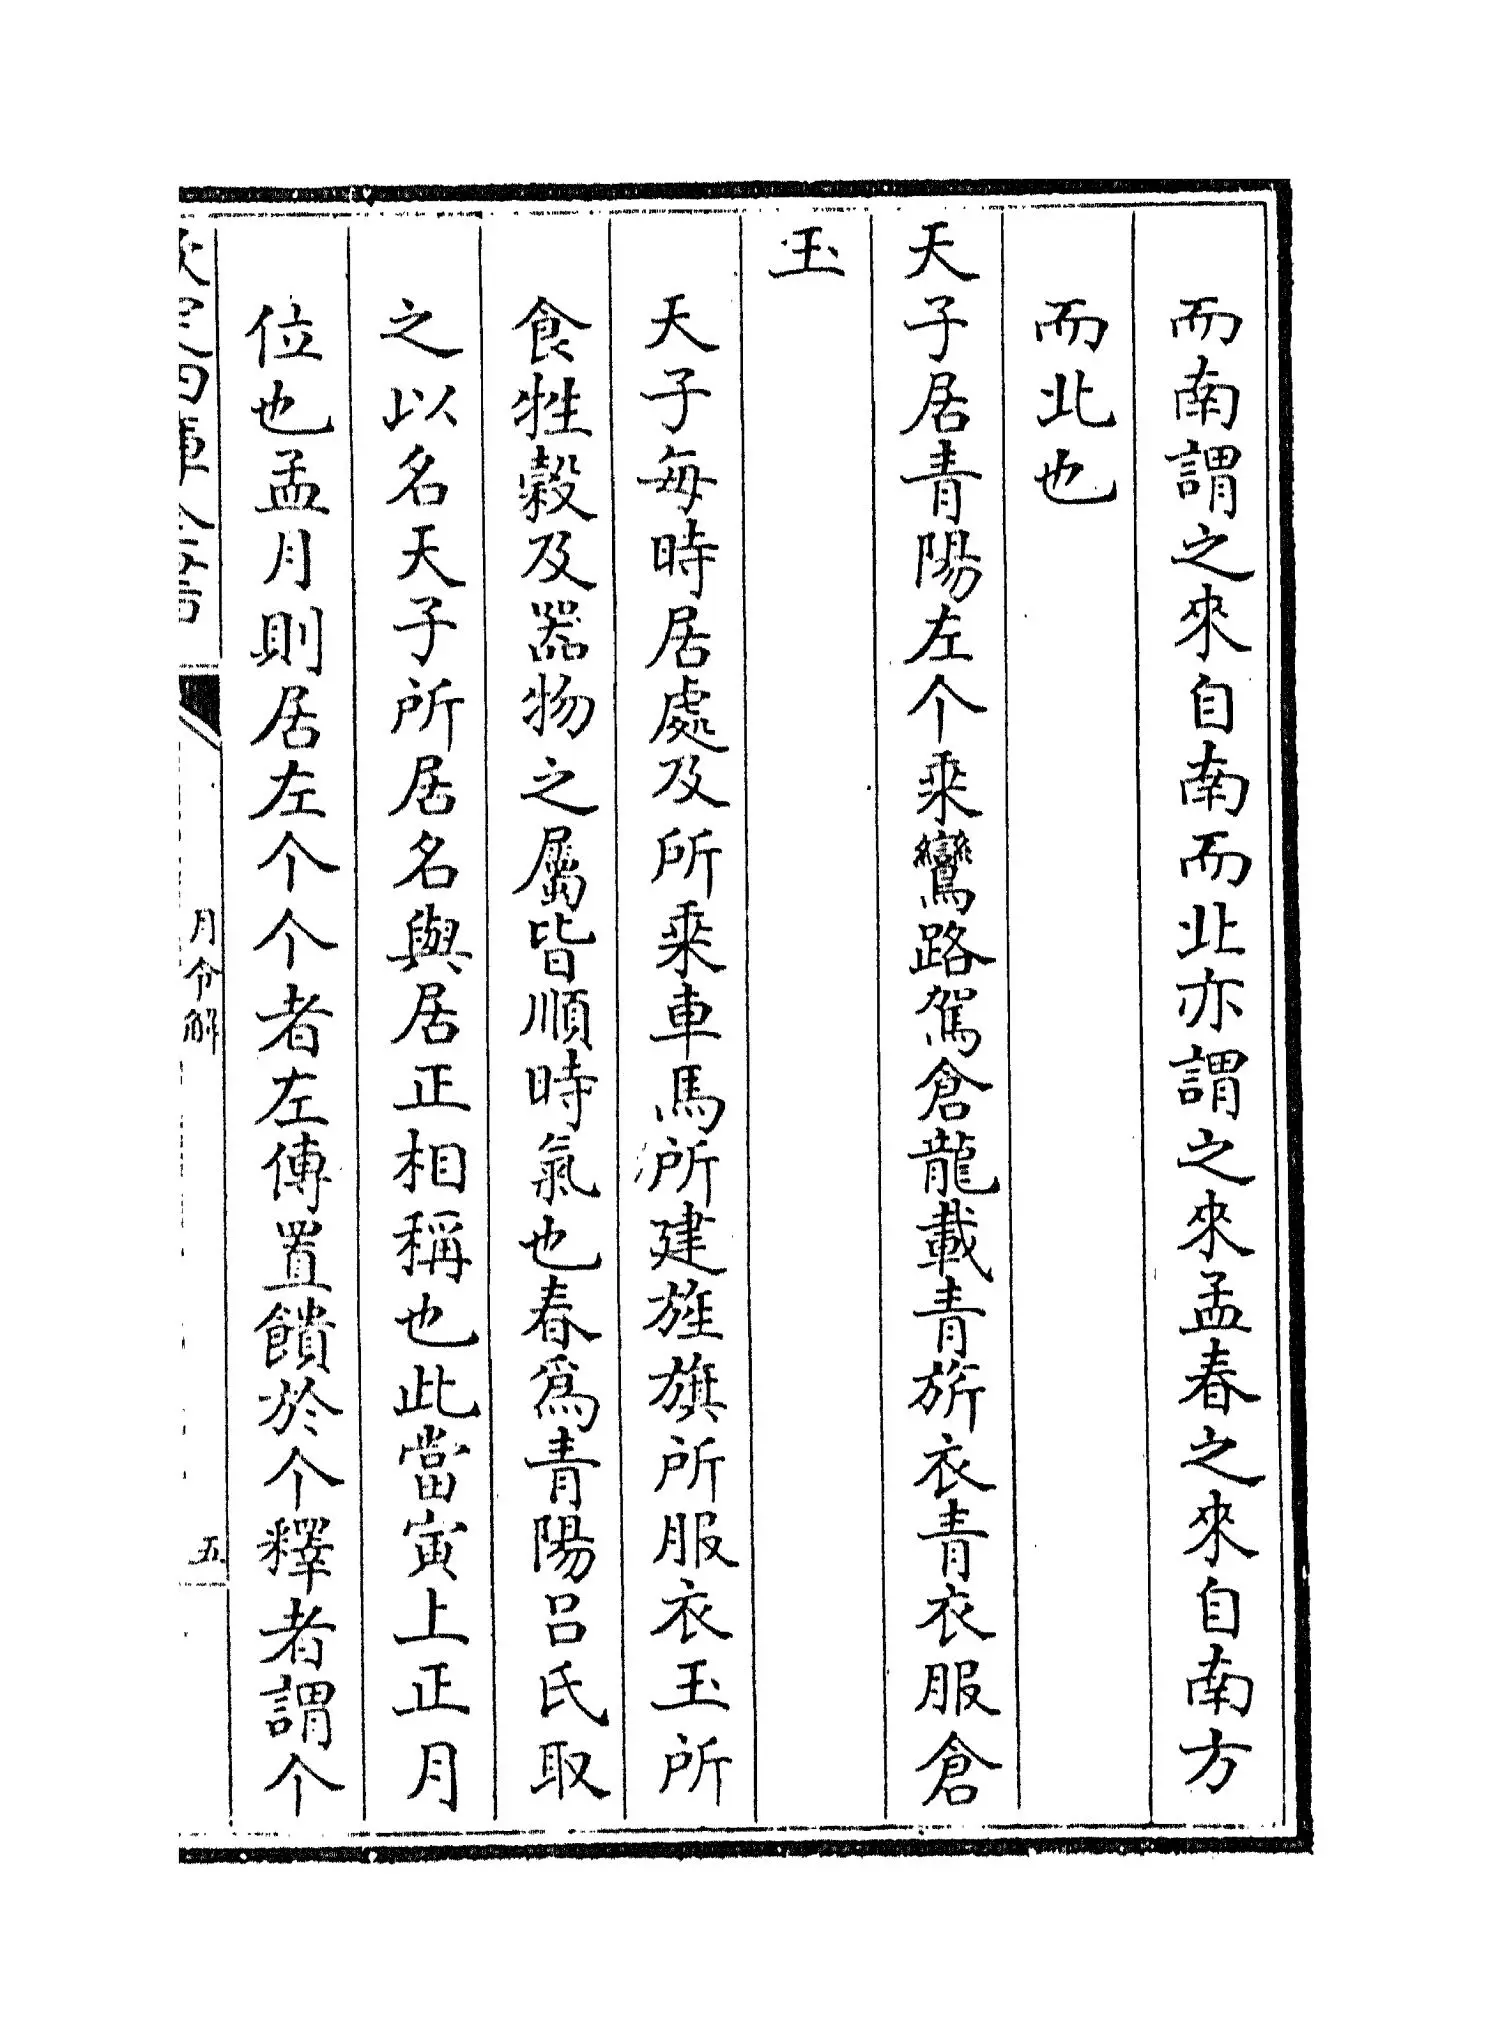 而南謂之來自南而北亦謂之來孟春之來自南方
而北也
天子居青陽左个乘鸞路駕倉龍載青旂衣青衣服倉
玉
天子每時居處及所乘車馬所建旌旗所服衣玉所
食牲穀及器物之屬皆順時氣也春為青陽呂氏取
之以名天子所居名與居正相稱也此當寅上正月
位也孟月則居左个个者左傳置饋於个釋者謂个
欽定四庫全書
月令解
五